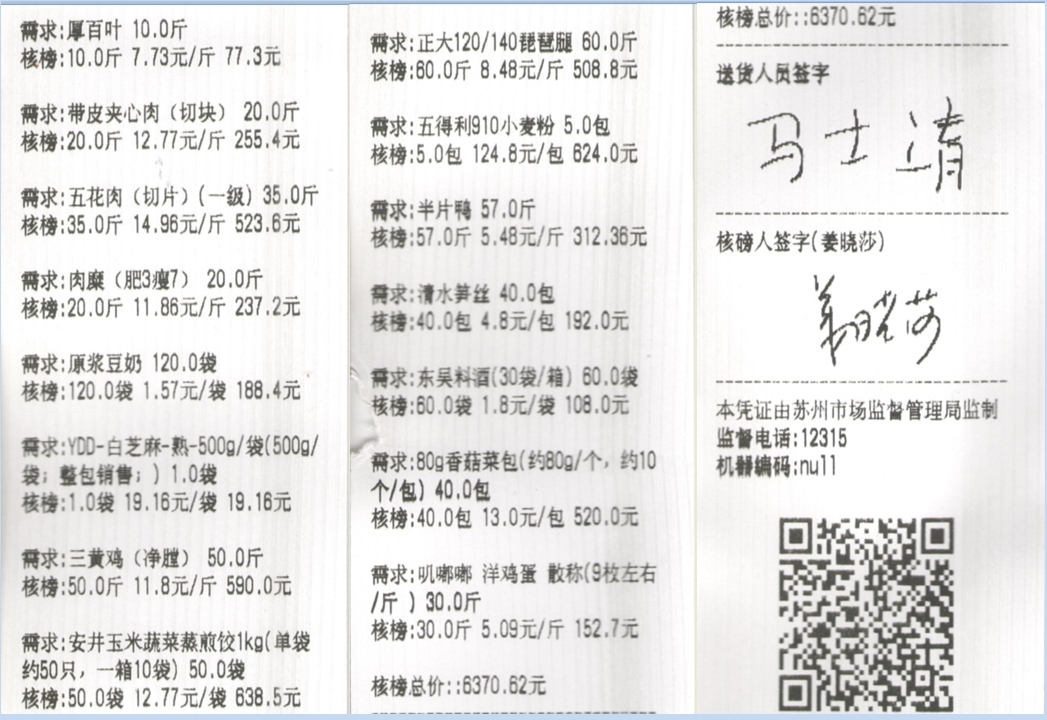 需求:厚百叶 10.0斤
核榜:10.0斤 7.73元/斤 77.3元
需求:带皮夹心肉（切块） 20.0斤
核榜:20.0斤 12.77元/斤 255.4元
需求:五花肉（切片）(一级) 35.0斤
核榜:35.0斤 14.96元/斤 523.6元
需求:肉糜（肥3瘦7） 20.0斤
核榜:20.0斤 11.86元/斤 237.2元
需求:原浆豆奶 120.0袋
核榜:120.0袋 1.57元/袋 188.4元
需求:YDD-白芝麻-熟-500g/袋(500g/
袋; 整包销售; ) 1.0袋
核榜:1.0袋 19.16元/袋 19.16元
需求:三黄鸡（净膛） 50.0斤
核榜:50.0斤 11.8元/斤 590.0元
需求:安井玉米蔬菜蒸煎饺1kg(单袋
约50只, 一箱10袋) 50.0袋
核榜:50.0袋 12.77元/袋 638.5元
需求:正大120/140琵琶腿 60.0斤
核榜:60.0斤 8.48元/斤 508.8元
需求:五得利910小麦粉 5.0包
核榜:5.0包 124.8元/包 624.0元
需求:半片鸭 57.0斤
核榜:57.0斤 5.48元/斤 312.36元
需求:清水笋丝 40.0包
核榜:40.0包 4.8元/包 192.0元
需求:东吴料酒(30袋/箱) 60.0袋
核榜:60.0袋 1.8元/袋 108.0元
需求:80g香菇菜包(约80g/个, 约10
个/包) 40.0包
核榜:40.0包 13.0元/包 520.0元
需求:叽嘟嘟 洋鸡蛋 散称(9枚左右
/斤 ) 30.0斤
核榜:30.0斤 5.09元/斤 152.7元
核榜总价::6370.62元
核榜总价::6370.62元
送货人员签字
马士清
核磅人签字(姜晓莎)
姜晓莎
本凭证由苏州市场监督管理局监制
监督电话:12315
机器编码:null